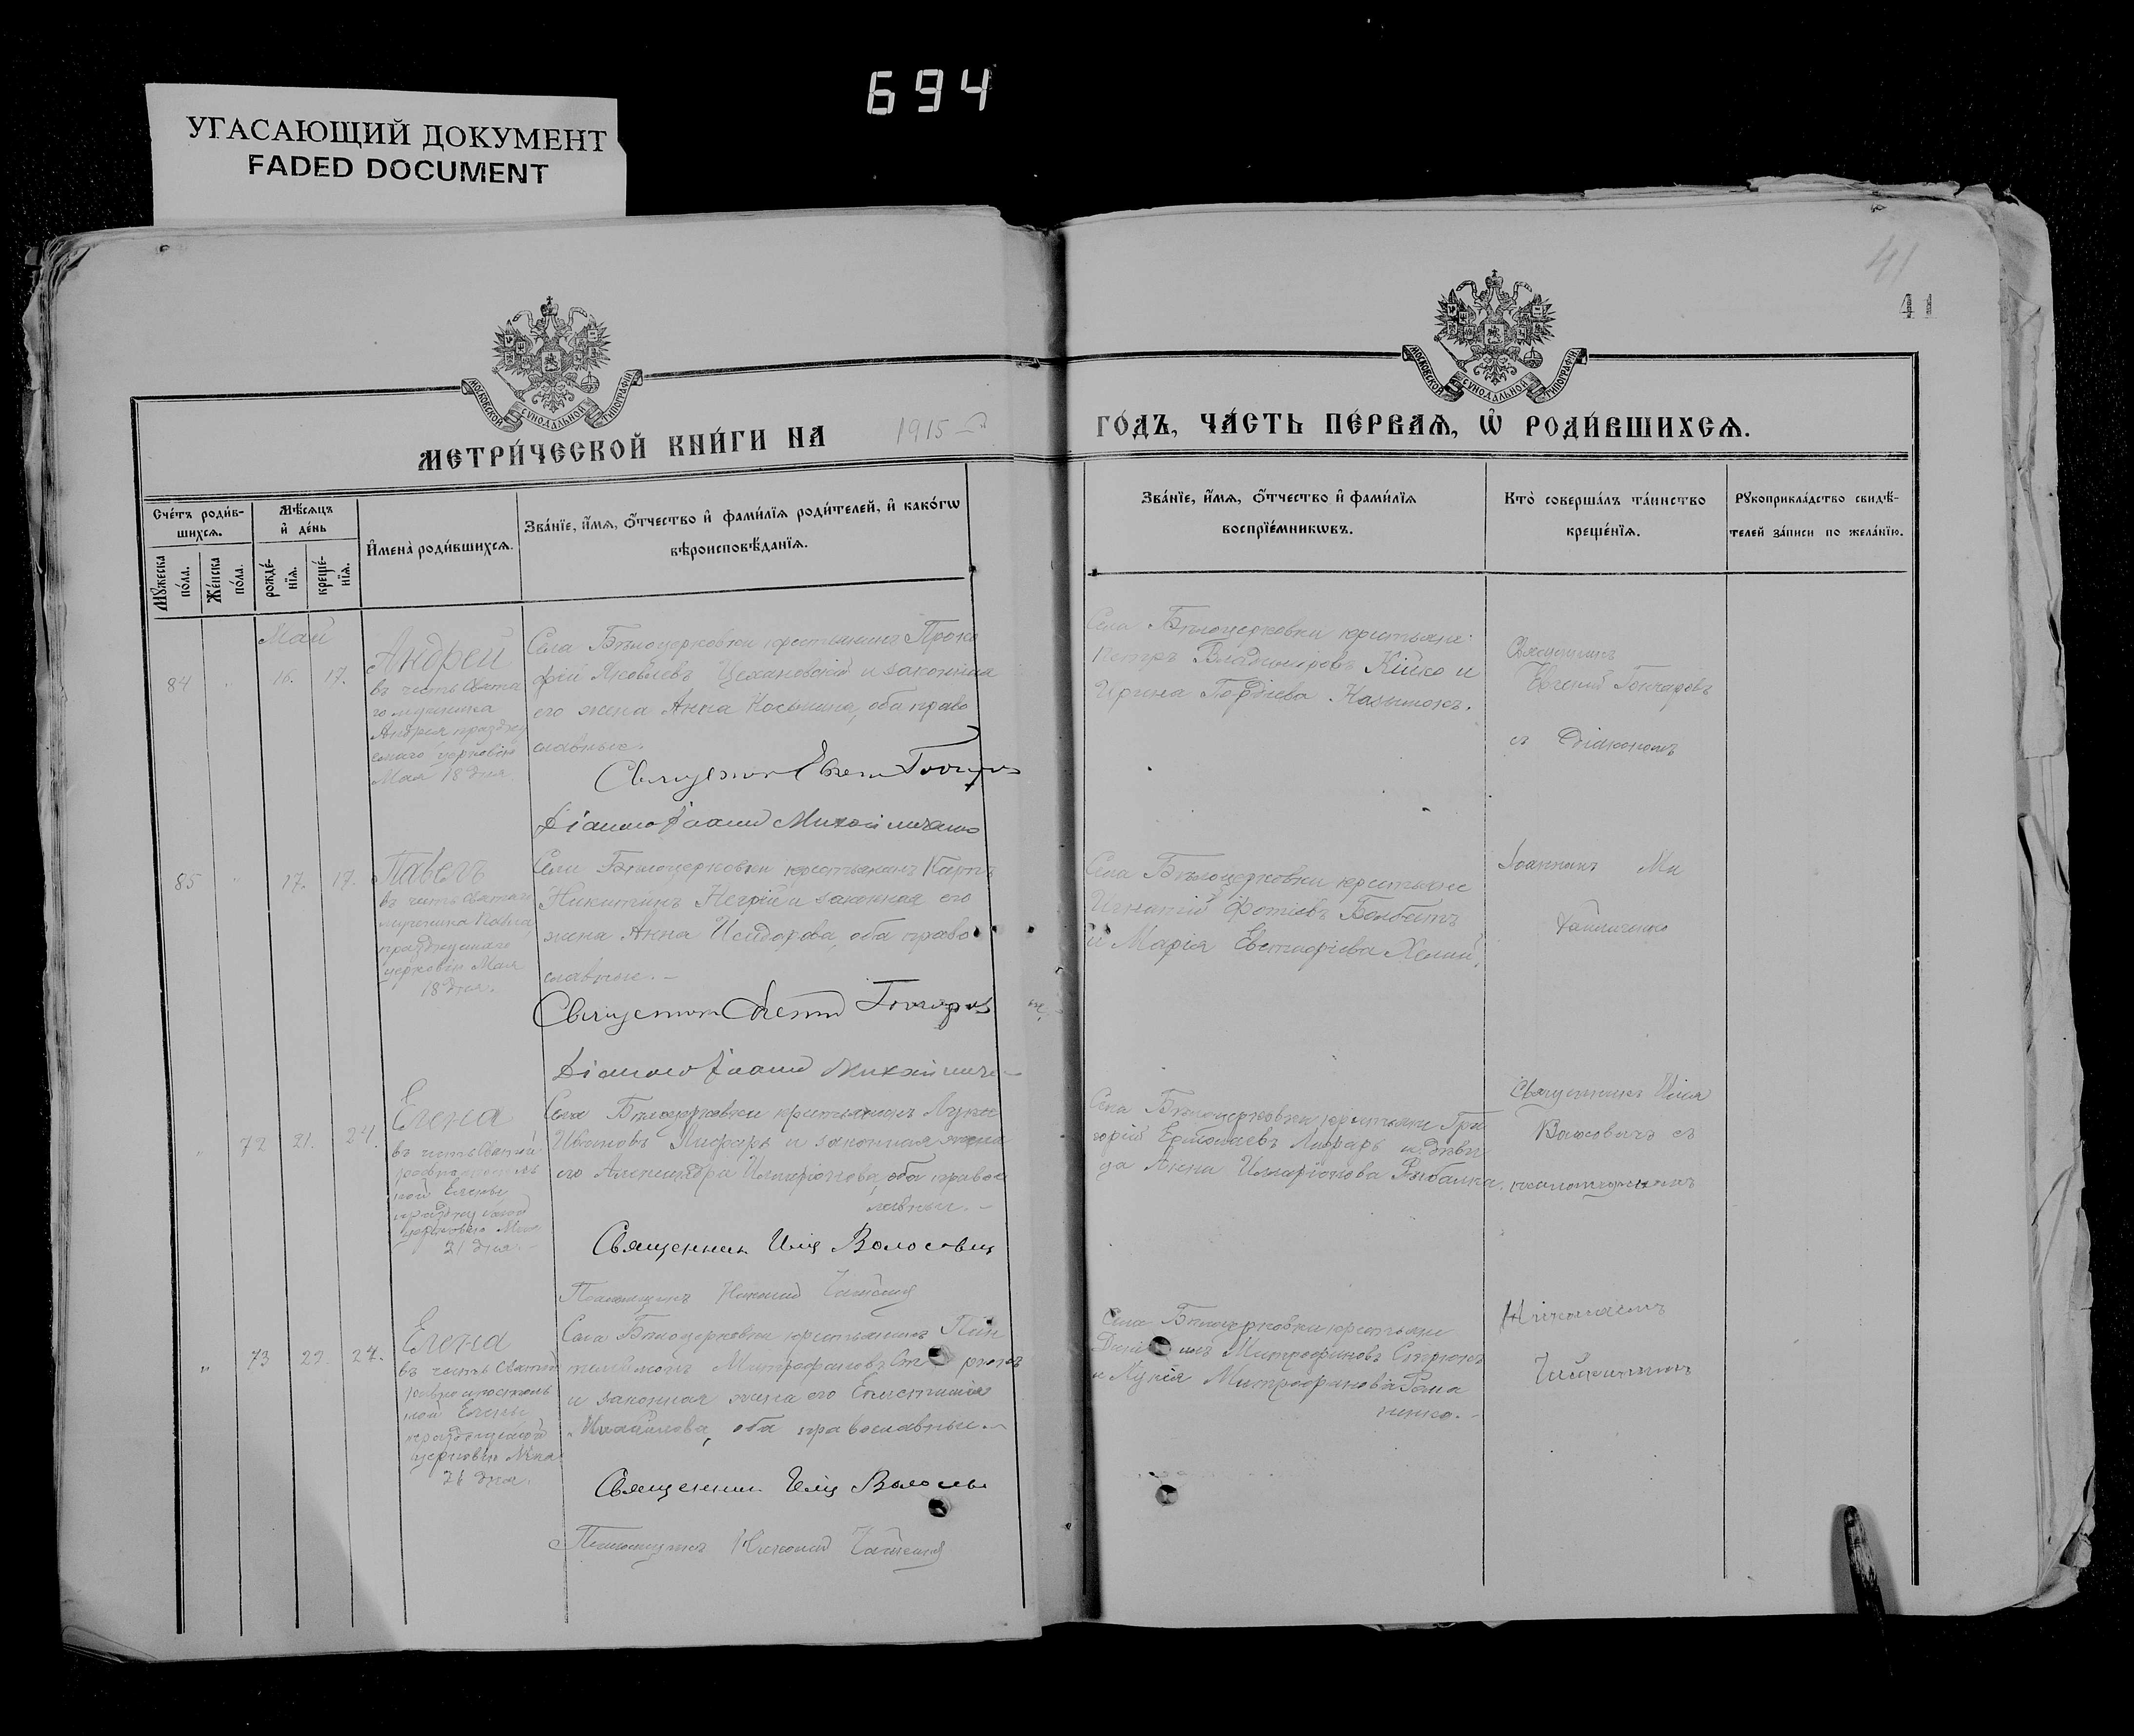 694
УГАСАЮЩИЙ ДОКУМЕНТ
FADED DOCUMENT
41
41
МОСКОВСКОЙ СѴНОДАЛЬНОЙ ТИПОГРАФІИ
МОСКОВСКОЙ СѴНОДАЛЬНОЙ ТИПОГРАФІИ
МЕТРИ́ЧЕСКОЙ КНИ́ГИ НА 1915 ГО́ДЪ, ЧА́СТЬ ПЕ́РВАѦ, Ѡ҆ РОДИ́ВШИХСѦ.
Сче́тъ роди́в-
шихсѧ.
Мꙋ́жеска
по́ла.
Же́нска
по́ла.
Мѣ́сѧцъ
и҆ де́нь
рожде́-
нїѧ.
креще́-
нїѧ.
И҆мена̀ роди́вшихсѧ.
Зва́нїе, и҆́мѧ, ѻ҆́тчество и҆ фами́лїѧ роди́телей, и҆ како́гѡ
вѣроисповѣ́данїѧ.
Зва́нїе, и҆́мѧ, ѻ҆́тчество и҆ фами́лїѧ
воспрїе́мникѡвъ.
Кто̀ соверша́лъ та́инство
креще́нїѧ.
Рꙋкоприкла́дство свидѣ́-
телей за́писи по жела́нїю.
Май
84 " 16. 17.
Андрей
въ честь Свята
го мученика
Андрея праздну
емаго церковію
Мая 18 дня.
Села Бѣлоцерковки крестьянинъ Проко
фій Яковлевъ Цехановскій и законная
его жена Анна Косьмина, оба право
славные.
Священник Евгений Гончаров
Діаконъ Іоаннъ Михайличенко
Села Бѣлоцерковки крестьяне
Петръ Владиміровъ Кійко и
Ирина Гордіева
Священникъ
Евгеній Гончаровъ
съ Діакономъ
85 " 17. 17.
Павелъ
въ честь Святаго
мученика Павла
празднуемаго
церковію Мая
18 дня.
Села Бѣлоцерковки крестьянинъ Карпъ
Никитинъ Негрій и законная его
жена Анна Исидорова, оба право
славные. –
Священник Евгений Гончаров
Діаконъ Іоаннъ Михайличе
Села Бѣлоцерковки крестьяне
Игнатій Фотіевъ
и Марія
Іоанномъ Ми
хайличенко
" 72 21. 24.
Елена
въ честь Святой
равноапостоль
ной Елены
празднуемой
церковію Мая
21 дня. –
Села Бѣлоцерковки крестьянинъ Лука
Ивановъ Лифарь и законная жена
его Александра Иларіонова, оба правос
лавные. –
Священник Илія Волосович
Села Бѣлоцерковки крестьяне Гри
горій Ермолаевъ Лифарь и дѣви
ца Анна Иларіонова Рыбалка.
Священникъ Илія
съ
псаломщикомъ
" 73 22. 24.
Елена
въ честь Святой
равноапостоль
ной Елены
празднуемой
церковію Мая
21 дня.
Села Бѣлоцерковки крестьянинъ Пан
телеймонъ Митрофановъ
и законная жена его
Михайлова, оба православные. –
Священник Илія
Села Бѣлоцерковки крестьяне
Даніилъ Митрофановъ
и Лукія Митрофанова Рома
ненко. –
Николаемъ